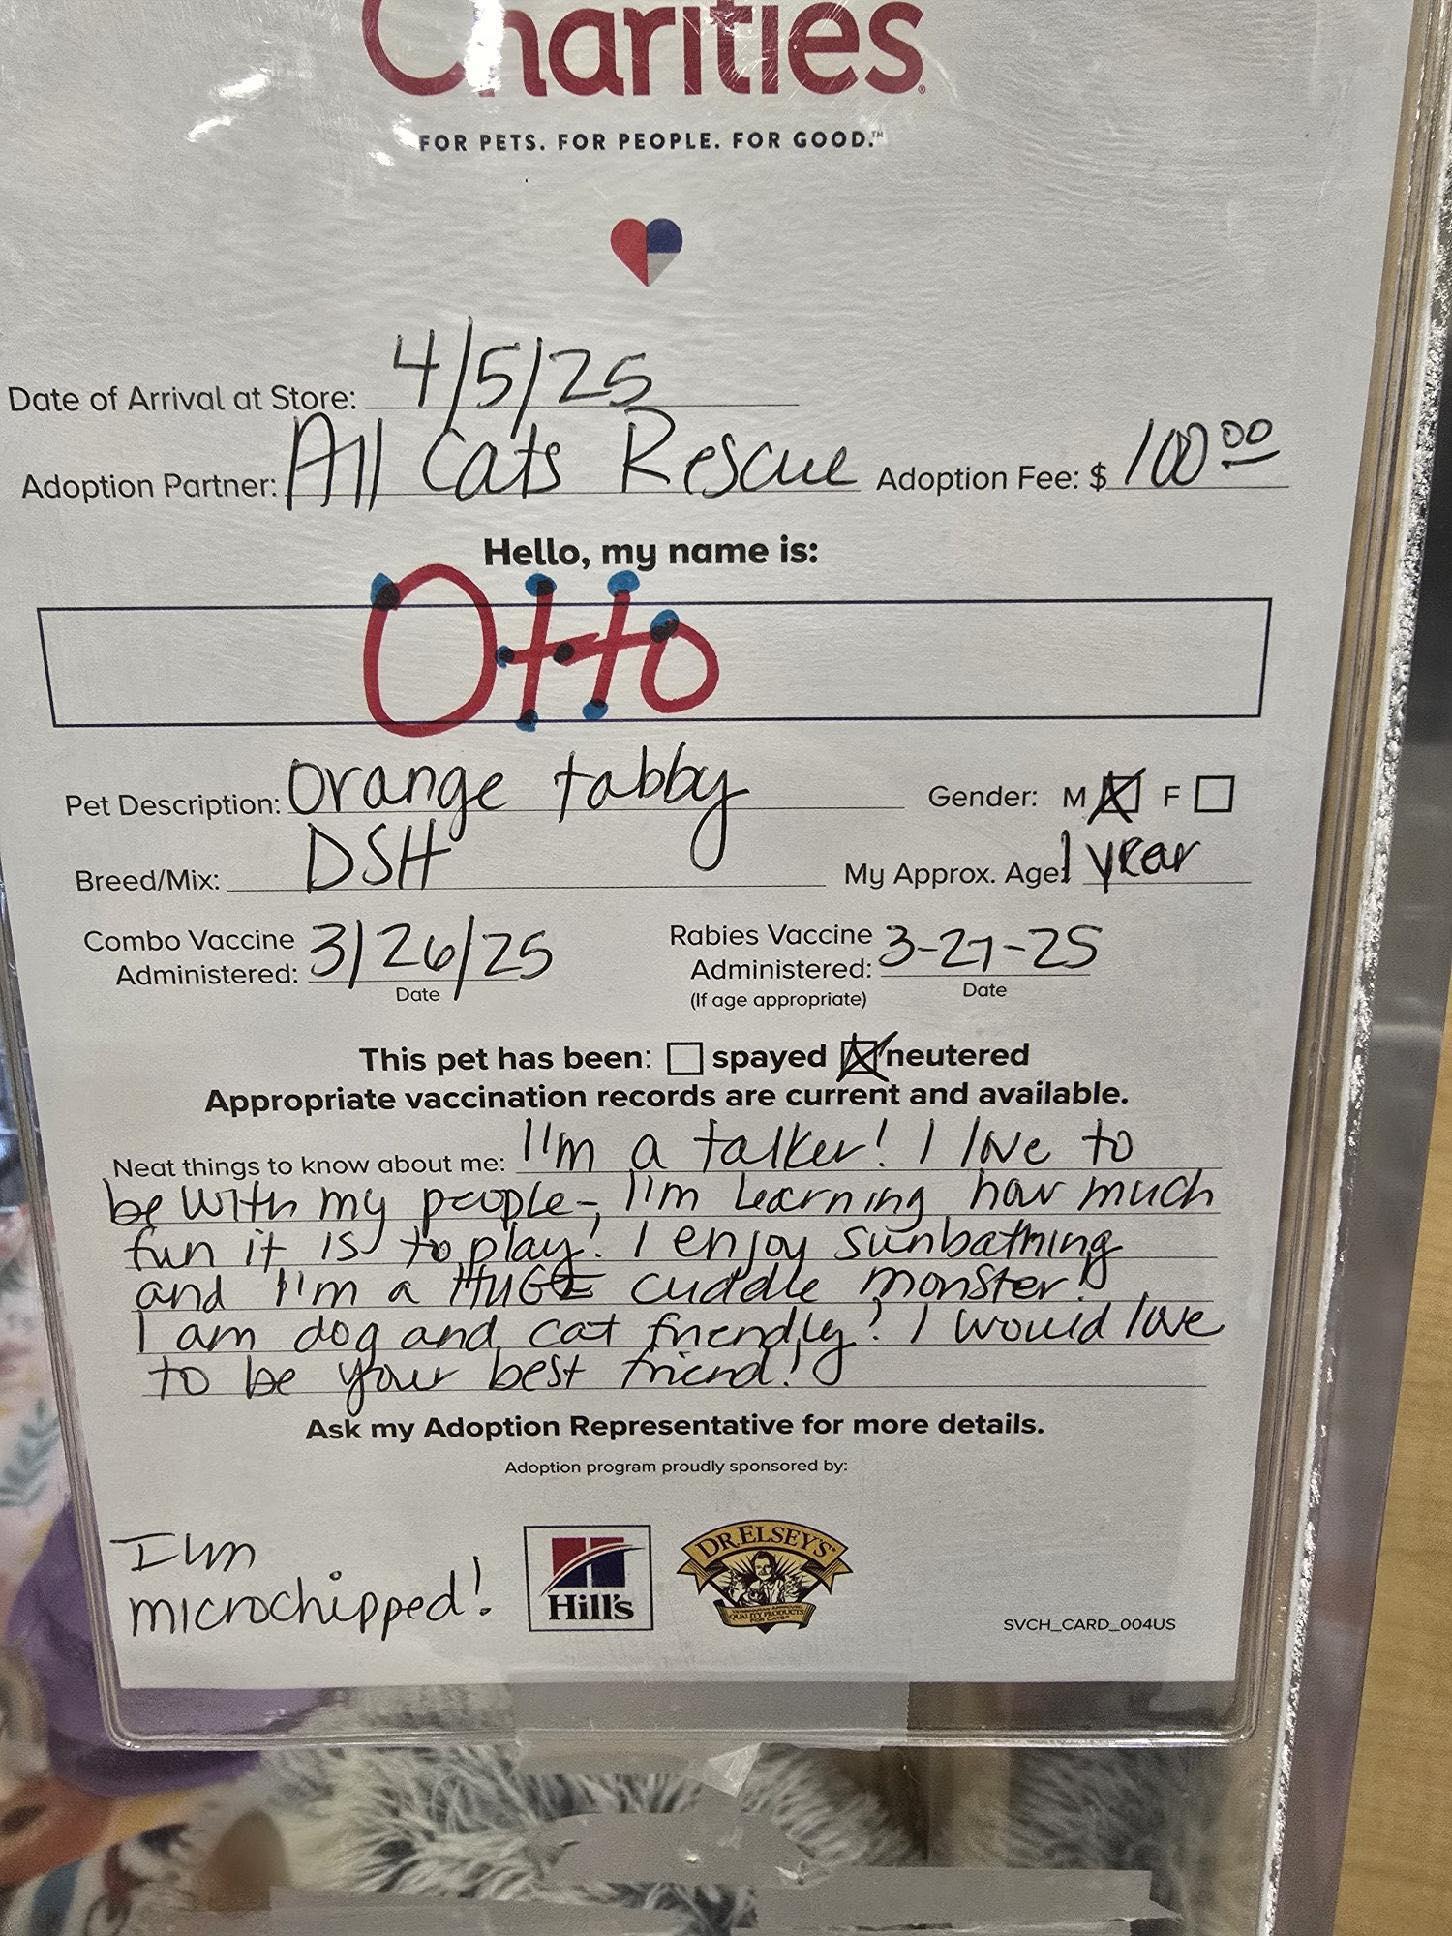 Charities
FOR PETS. FOR PEOPLE. FOR GOOD.™
Date of Arrival at Store: 4/5/25
Adoption Partner: All Cats Rescue Adoption Fee: $ 100.00
Hello, my name is:
Otto
Pet Description: Orange tabby Gender: M ☒ F ☐
Breed/Mix: DSH My Approx. Age: 1 year
Combo Vaccine Administered: 3/26/25
Date
Rabies Vaccine Administered: 3-27-25
(If age appropriate) Date
This pet has been: ☐ spayed ☒ neutered
Appropriate vaccination records are current and available.
Neat things to know about me: I'm a talker! I love to
be with my people-, I'm learning how much
fun it is to play! I enjoy sunbathing
and I'm a HUGE cuddle monster!
I am dog and cat friendly! I would love
to be your best friend!
Ask my Adoption Representative for more details.
Adoption program proudly sponsored by:
I'm
microchipped!
Hill's
DR. ELSEY'S
QUALITY PRODUCTS
SVCH_CARD_004US